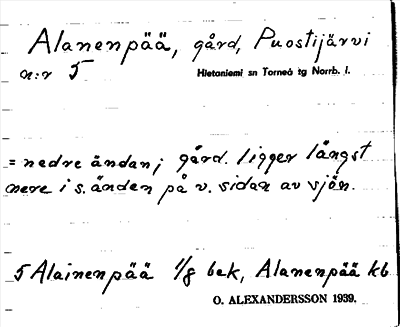 Alanenpää, gård, Puostijärvi
n:r 5 Hietaniemi sn Torneå tg Norrb. l.
= nedre ändan; gård. ligger längst
nere i s. änden på v. sidan av sjön.
5 Alainenpää 1/8 bek, Alanenpää kb
O. ALEXANDERSSON 1939.